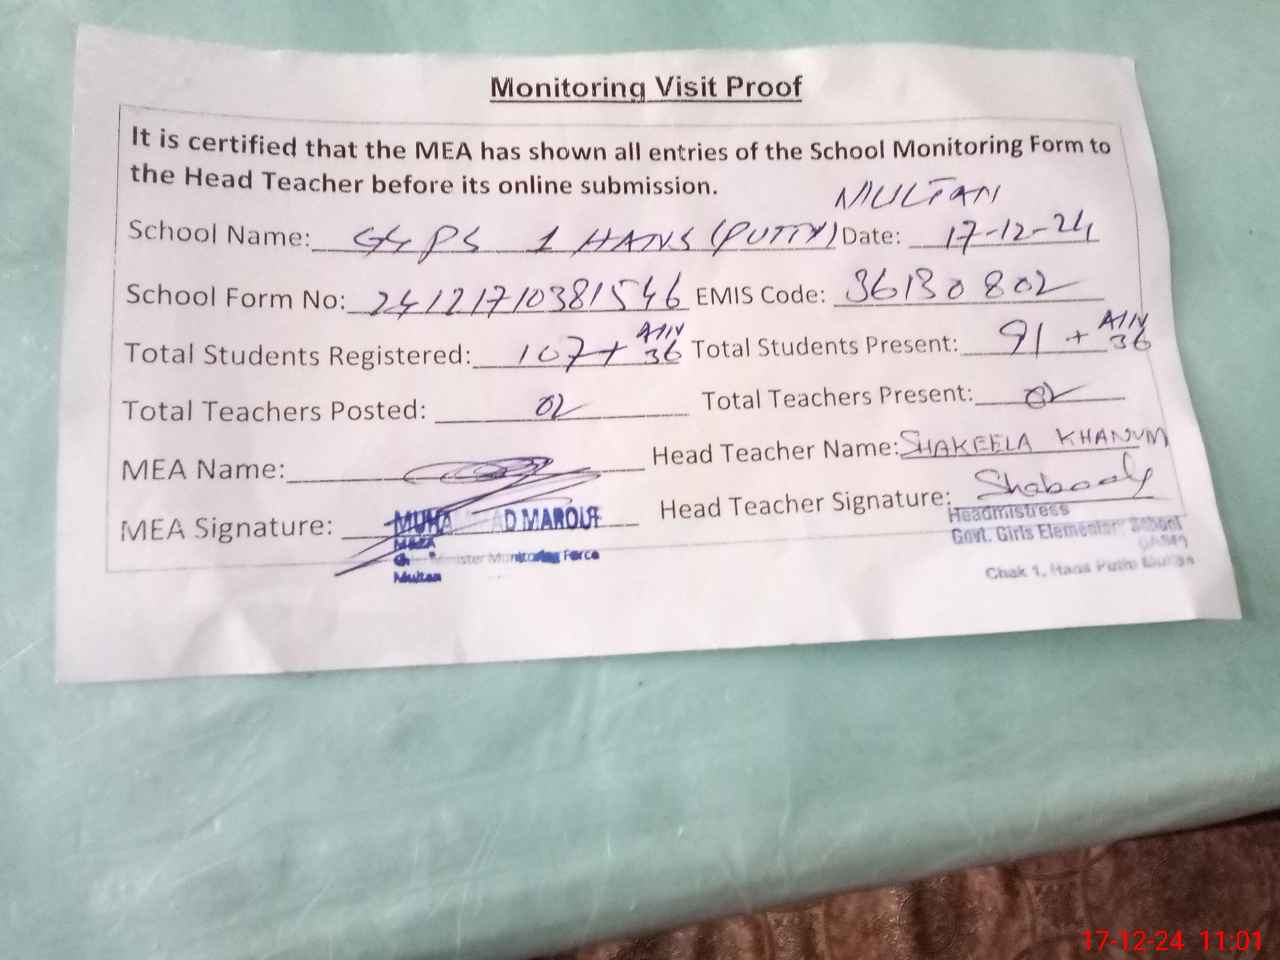 Monitoring Visit Proof
It is certified that the MEA has shown all entries of the School Monitoring Form to
the Head Teacher before its online submission.
MULTAN
School Name: GGPS 1 HANS (PUTTY) Date: 17-12-24
School Form No: 24121710381546 EMIS Code: 36130802
Total Students Registered: 107 + 36 Total Students Present: 91 + 36
Total Teachers Posted: 02 Total Teachers Present: 02
MEA Name: Head Teacher Name: SHAKEELA KHANUM
MEA Signature: Head Teacher Signature:
MAROUF
Minister Monitoring Force
Multan
Headmistress
Govt. Girls Elementary School
Chak 1, Hans
17-12-24 11:01